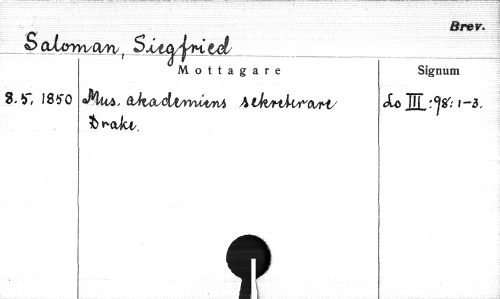 Brev.
Saloman, Siegfried
Mottagare Signum
8.5. 1850 Mus. akademiens sekreterare do III:98:1-3.
Drake.